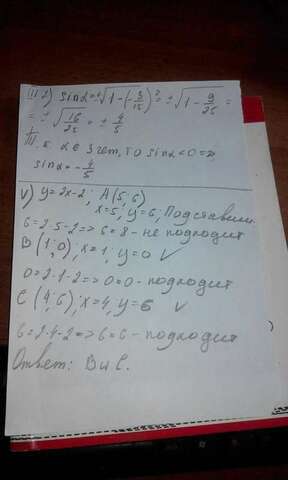 III 2) sinα=±√1-(-3/15)² = ±√1-9/25 =
= ±√16/25 = ± 4/5
III. к α∈3 чет, то sinα<0 =>
sinα=-4/5
V) y=2x-2; A(5;6)
x=5, y=6, Подставим
6=2·5-2=>6=8- не подходит
B(1;0); x=1, y=0 ✓
0=2·1-2=>0=0- подходит
C (4;6); x=4, y=6 ✓
6=2·4-2=>6=6- подходит
Ответ: B и C.